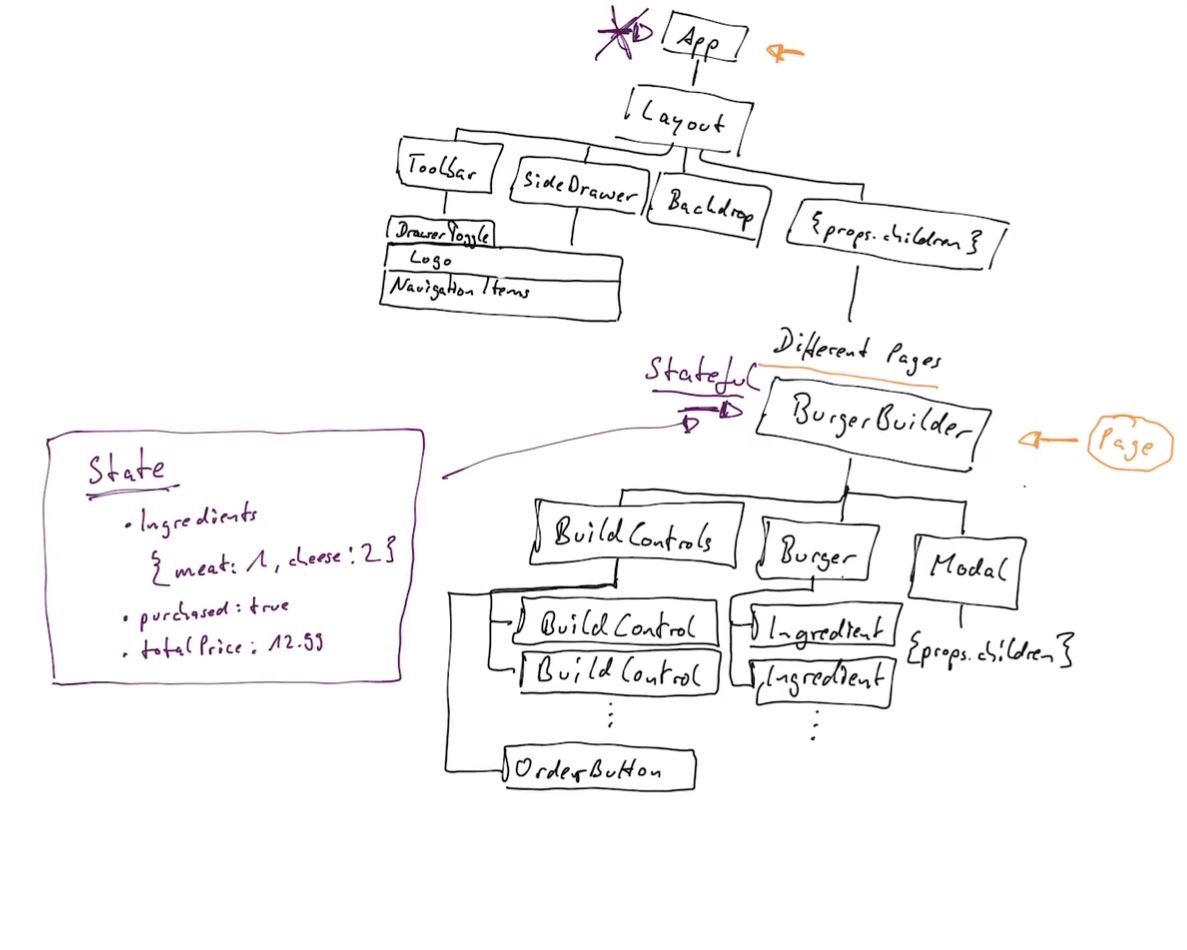 App
Layout
Toolbar
SideDrawer
Backdrop
{props.children}
DrawerToggle
Logo
Navigation Items
Different Pages
Stateful
BurgerBuilder
Page
State
• Ingredients
{meat: 1, cheese: 2}
• purchased: true
• totalPrice: 12.99
Build Controls
Burger
Modal
Build Control
Build Control
⋮
OrderButton
Ingredient
Ingredient
⋮
{props.children}